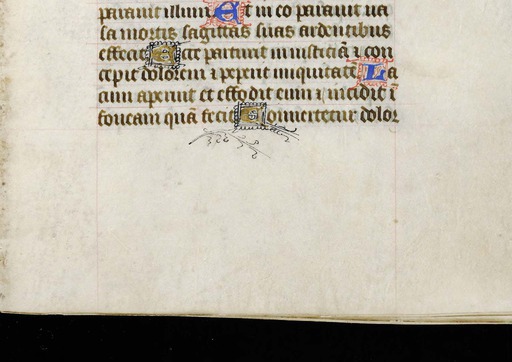 parauit illum Et in eo parauit ua
sa mortis sagittas suas ardentibus
effecit Ecce parturit iniusticiā ⁊ con
cepit dolorem ⁊ peperit iniquitatē La
cum aperuit et effodit eum ⁊ incidit ī
foueam quā fecit Conuertetur dolor